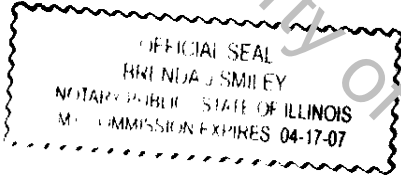 OFFICIAL SEAL
BRENDA J SMILEY
NOTARY PUBLIC STATE OF ILLINOIS
MY COMMISSION EXPIRES 04-17-07
ity of